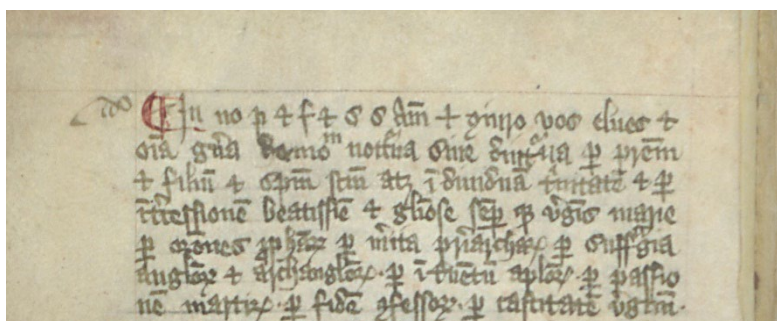 In no p ⁊ f ⁊ s s am̄ + ꝯiuro vos elues ⁊
oīa gn̄a demonū noctͥna siue diurͥna ꝑ prēm
⁊ filiū ⁊ spm̄ scm̄ atꝫ īdiuiduā tͥnitatē ⁊ ꝑ
īt̄cessionē beatissīe ⁊ glīose semꝑ vͥgīs marie
ꝑ or̄ones ꝓphāꝝ ꝑ m̄ita pr̄iarchaꝝ ꝑ suffͣgia
angl̄oꝝ ⁊ archangl̄oꝝ · ꝑ īt̄uētū apl̄oꝝ · ꝑ passio
nē martirꝝ · ꝑ fidē ꝯfessoꝝ · ꝑ castitatē vͥgīm ·